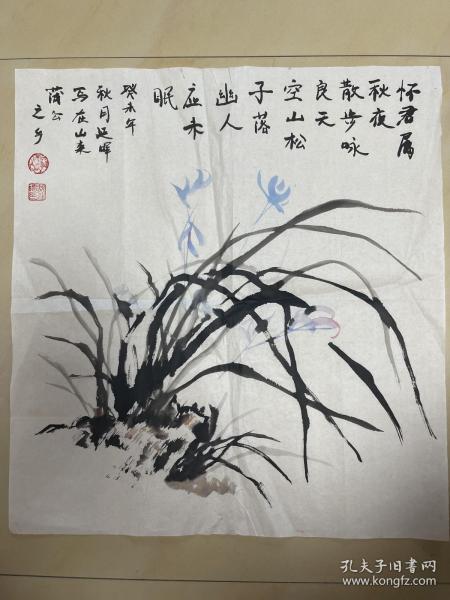 怀君属
秋夜
散步咏
良天
空山松
子落
幽人
应未
眠
癸未年
秋月延晖
写在山东
蒲公
之乡
孔夫子旧书网
www.kongfz.com